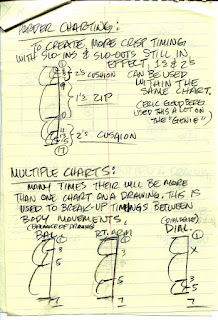 HARDER CHARTING:
TO CREATE MORE CRISP TIMING
WITH SLO-INS & SLO-OUTS STILL IN
EFFECT, 1'S & 2'S
2'S CUSHION
CAN BE USED
WITHIN THE
SAME CHART.
1'S ZIP
(ERIC GOLDBERG
USED THIS A LOT
ON THE "GENIE")
2'S CUSHION
17
MULTIPLE CHARTS:
MANY TIMES THEIR WILL BE MORE
THAN ONE CHART ON A DRAWING. THIS IS
USED TO BREAK-UP TIMINGS BETWEEN
BODY MOVEMENTS.
(BALANCE OF DRAWING)
BAL.
RT. ARM
(DIALOGUE)
DIAL.
1
1
1
3
3
X
5
5
3
5
7
7
7